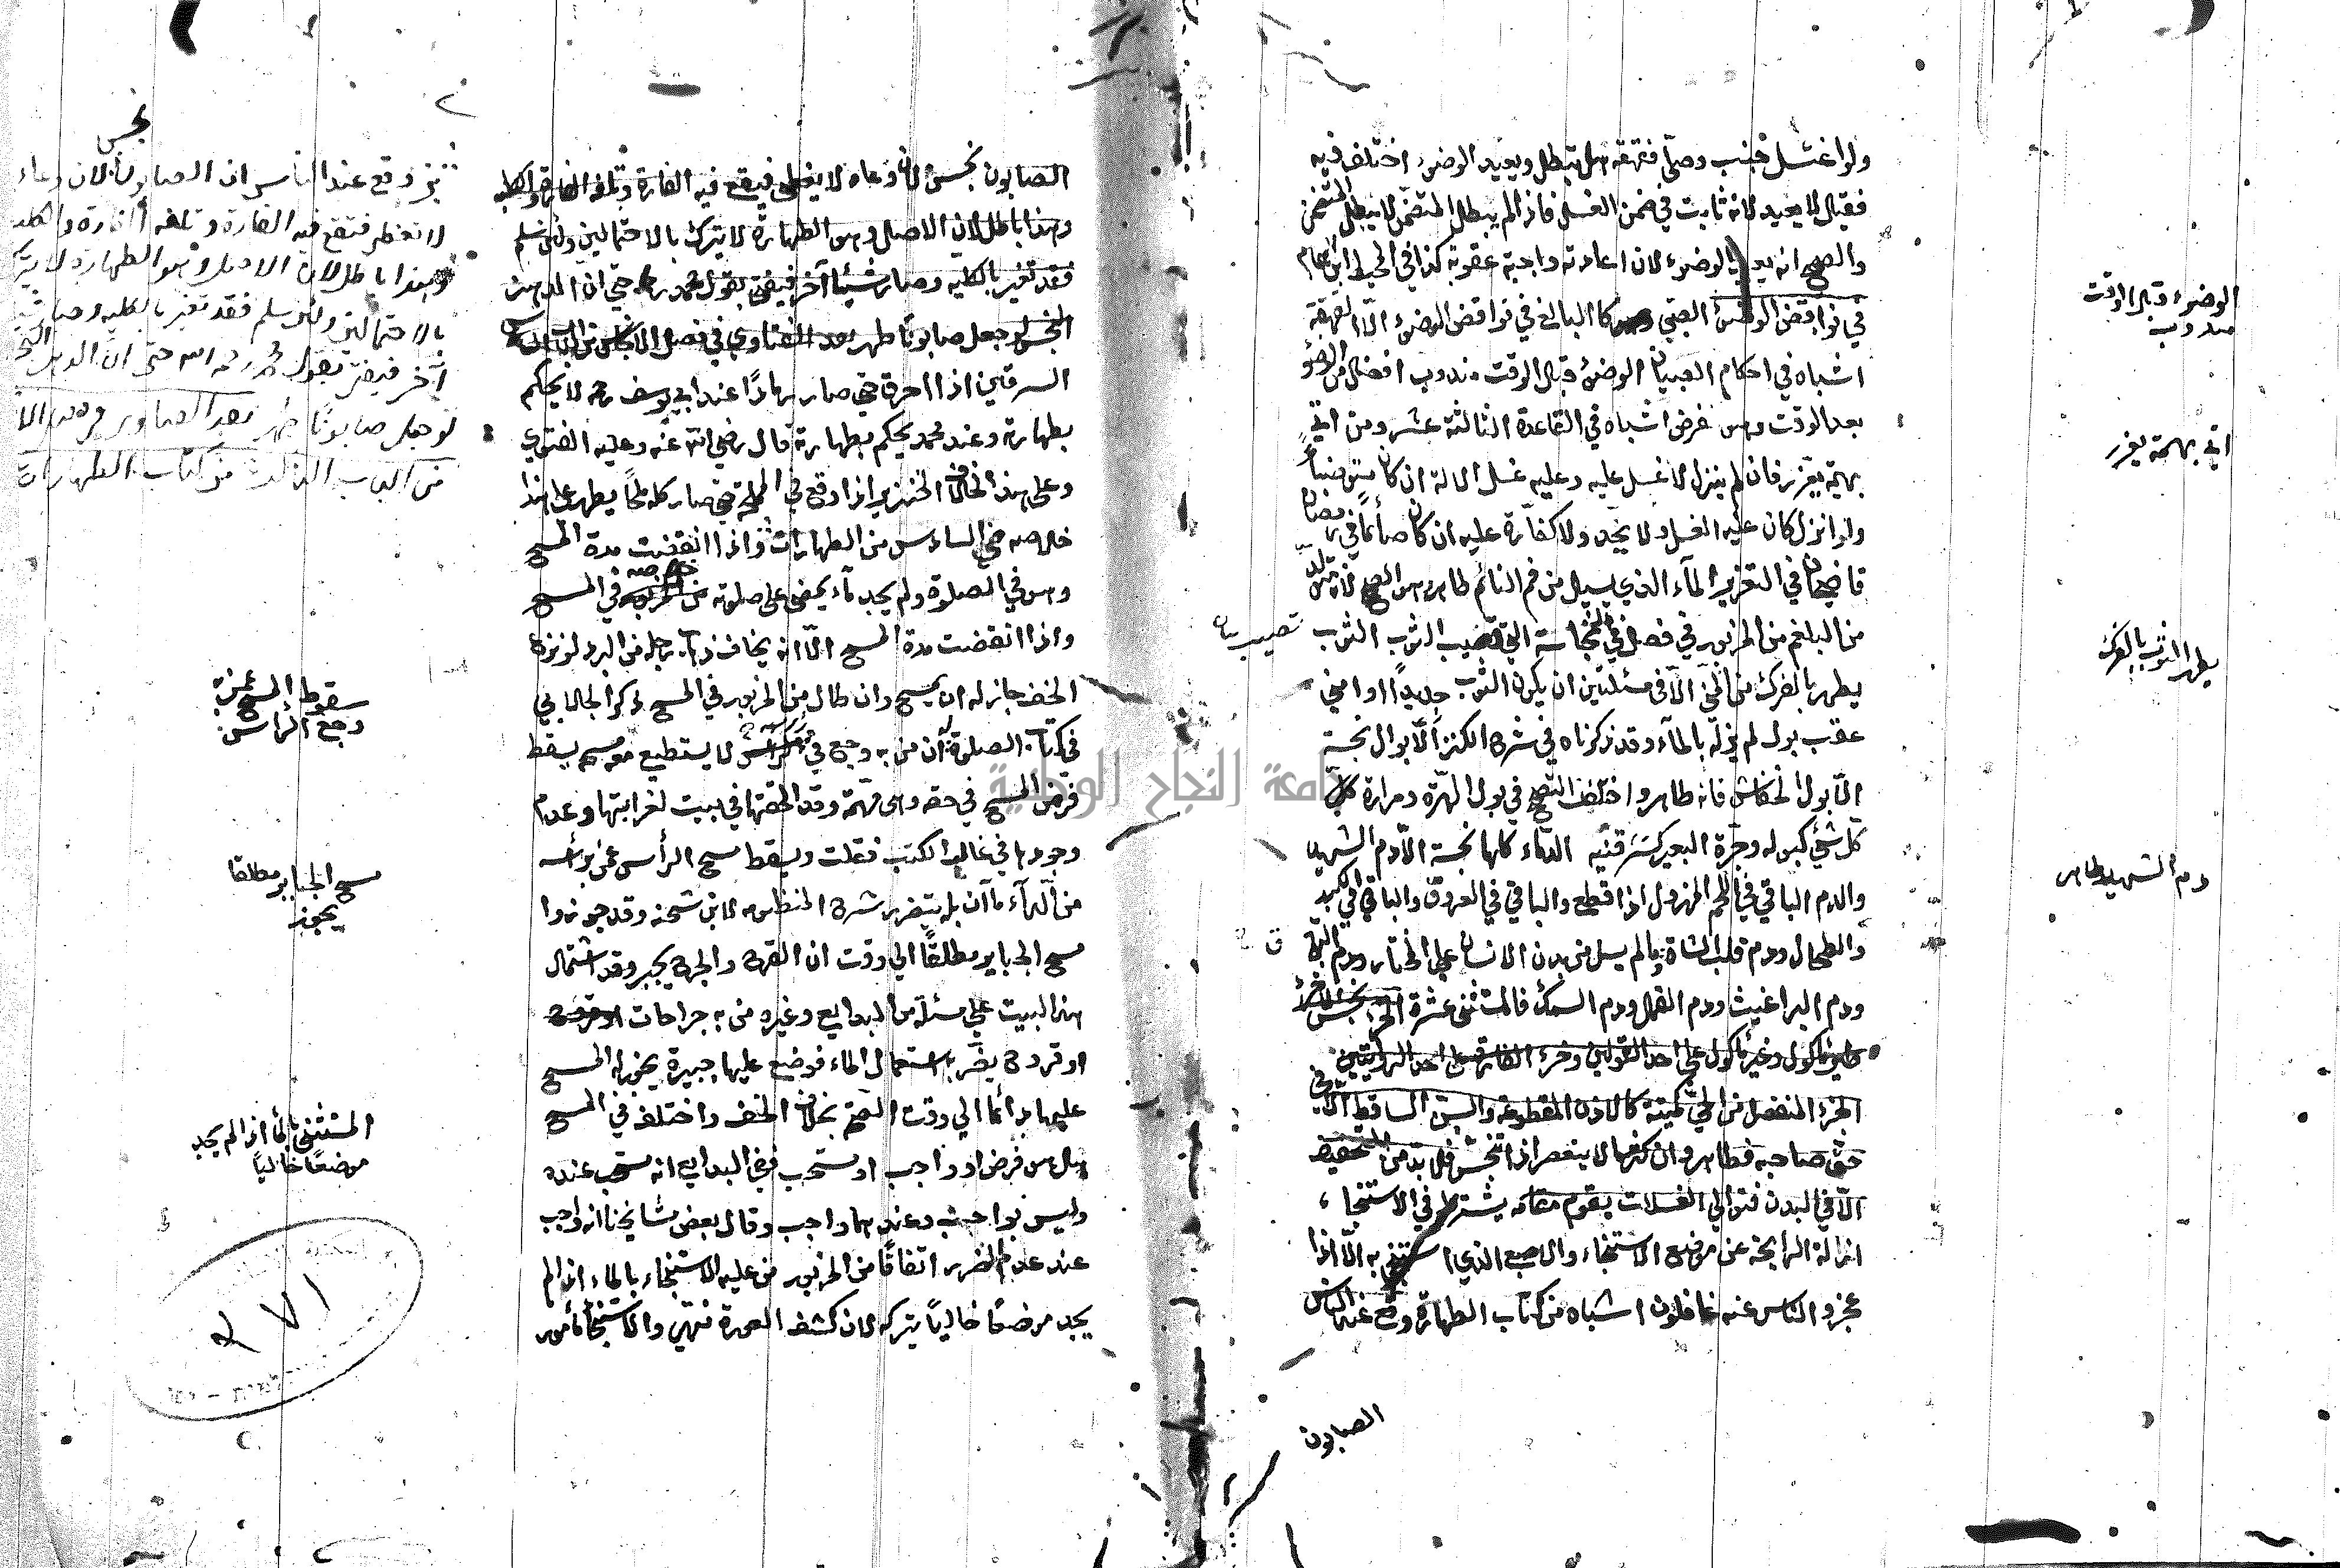 ولو اغتسل جنب وصلى فقهقه هل تبطل ويعيد الوضوء اختلف فيه
فقيل لا يعيد لانه ثابت في ضمن الغسل فاذا لم يبطل المتضمِّن لا يبطل المتضمَّن
والصحيح انه يعيد الوضوء لان اعادته واجبة عقوبة كذا في المحيط ابن الهمام
في نواقض الوضوء الصبي كالبالغ في نواقض الوضوء الّا القهقهة
اشباه في احكام الصبيان الوضوء قبل الوقت مندوب افضل من الوضوء
بعد الوقت وهو فرض اشباه في القاعدة الثالثة عشر ومن اتى
بهيمة يعزر فان لم ينزل لا غسل عليه وعليه غسل الالة ان كان متوضئاً
ولو انزل كان عليه الغسل ولا يحد ولا كفارة عليه ان كان صائما في رمضان
قاضيخان في التعزير الماء الذي يسيل من فم النائم طاهر هو الصحيح لانه متولد
من البلغم من المزبور في فصل في النجاسة التي تصيب الثوب الثوب
يطهر بالفرك من المني الّا في مسئلتين ان يكون الثوب جديداً او امنى
عقب بول لم يزله بالماء وقد ذكرناه في شرح الكنز الابوال نجسة
الّا بول الخفاش فانه طاهر واختلف التصحيح في بول الهرّة ومرارة
كل شيء كبوله وجرّة البعير كسرقنيه الدماء كلها نجسة الّا دم الشهيد
والدم الباقي في اللحم المهزول اذا قطع والباقي في العروق والباقي في الكبد
والطحال ودم قلب الشاة وما لم يسل من بدن الانسان على المختار ودم البق
ودم البراغيث ودم القمل ودم السمك فالمستثنى عشرة الخرء نجس الا خرء
طير مأكول وغير مأكول على احد القولين وخرء الفارة على احد الروايتين
الجزء المنفصل من الحي كميتته كالاذن المقطوعة والسن الساقط الّا في
حق صاحبه فطاهر وان كثر ما لا ينعصر اذا تنجس فلا بد من التجفيف
الّا في البدن فتوالي الغسلات يقوم مقامه يشترط في الاستنجاء
ازالة الرايحة عن موضع الاستنجاء والاصبع الذي استنجى به الّا اذا
عجز والناس عنه غافلون اشباه من كتاب الطهارة وقع عند الناس
الصابون
الوضوء قبل الوقت
مندوب
اتى بهيمة يعزر
تصيب بيان
يطهر الثوب بالفرك
دم الشهيد طاهر
الصابون نجس لان وعاه لا يغطى فيقع فيه الفارة وتلغه الفارة والكلب
وهذا باطل لان الاصل وهو الطهارة لا يترك بالاحتمالين ولئن سلم
فقد تغير بالكلية وصار شيئا آخر فيفتى بقول محمد رحمه حتى ان الدهن
النجس لو جعل صابونا طهر
السرقين اذا احرق حتى صار رمادًا عند ابي يوسف رحمه لا يحكم
بطهارته وعند محمد يحكم بطهارة قال رضي الله عنه وعليه الفتوى
وعلى هذا الخلاف الخنزير اذا وقع في المملحة حتى صار كله ملحاً يطهر على هذا
خلاصه في السادس من الطهارات واذا انقضت مدة المسح
وهو في الصلوة ولم يجد ماء يمضي على صلوته من خلاصه في المسح
واذا انقضت مدة المسح الّا انه يخاف ذهاب رجله من البرد لو نزع
الخف جاز له ان يمسح وان طال من المزبور في المسح ذكر الجلابي
في كتاب الصلوة ان من به وجع في رأسه لا يستطيع معه مسحه يسقط
فرض المسح في حقه وهي مهمة وقد الحقتها في بيت لغرابتها وعدم
وجودها في غالب الكتب فقلت ويسقط مسح الرأس عمن برأسه
من الداء ما ان بله يتضرر شرح المنظومه لابن شحنه وقد جوزوا
مسح الجباير مطلقاً الى وقت ان القرح والجرح يجبر وقد اشتمل
هذا البيت على مسئلة من البدايع وغيره من به جراحات
او قروح يضرّ به استعمال الماء فوضع عليها جبيرة يجوز له المسح
عليها دائما الى وقت الصحة بخلاف الخف واختلف في المسح
هل هو فرض او واجب او مستحب ففي البدايع انه مستحب عنده
وليس بواجب وعندهما واجب وقال بعض مشايخنا انه واجب
عند عدم الضرر اتفاقًا من المزبور من عليه الاستنجاء بالماء اذا لم
يجد موضعًا خالياً يتركه لان كشف العورة منهي والاستنجاء مأمور
نجس
وقع عند الناس ان الصابون لان وعاء
لا تغطى فتقع فيه الفارة وتلغه الفارة والكلب
وهذا باطل لان الاصل وهو الطهارة لا يترك
بالاحتمالين ولئن سلم فقد تغير بالكليه وصار شيئا
آخر فيفتى بقول محمد رحمه الله حتى انّ الدهن النجس
لو جعل صابونًا طهر
من الباب الثالث من كتاب الطهارات
سقوط المسح عمن به
وجع الرأس
مسح الجباير مطلقا
يجوز
المستنجى بالماء اذا لم يجد
موضعًا خالياً
٢٧١
جامعة النجاح الوطنية